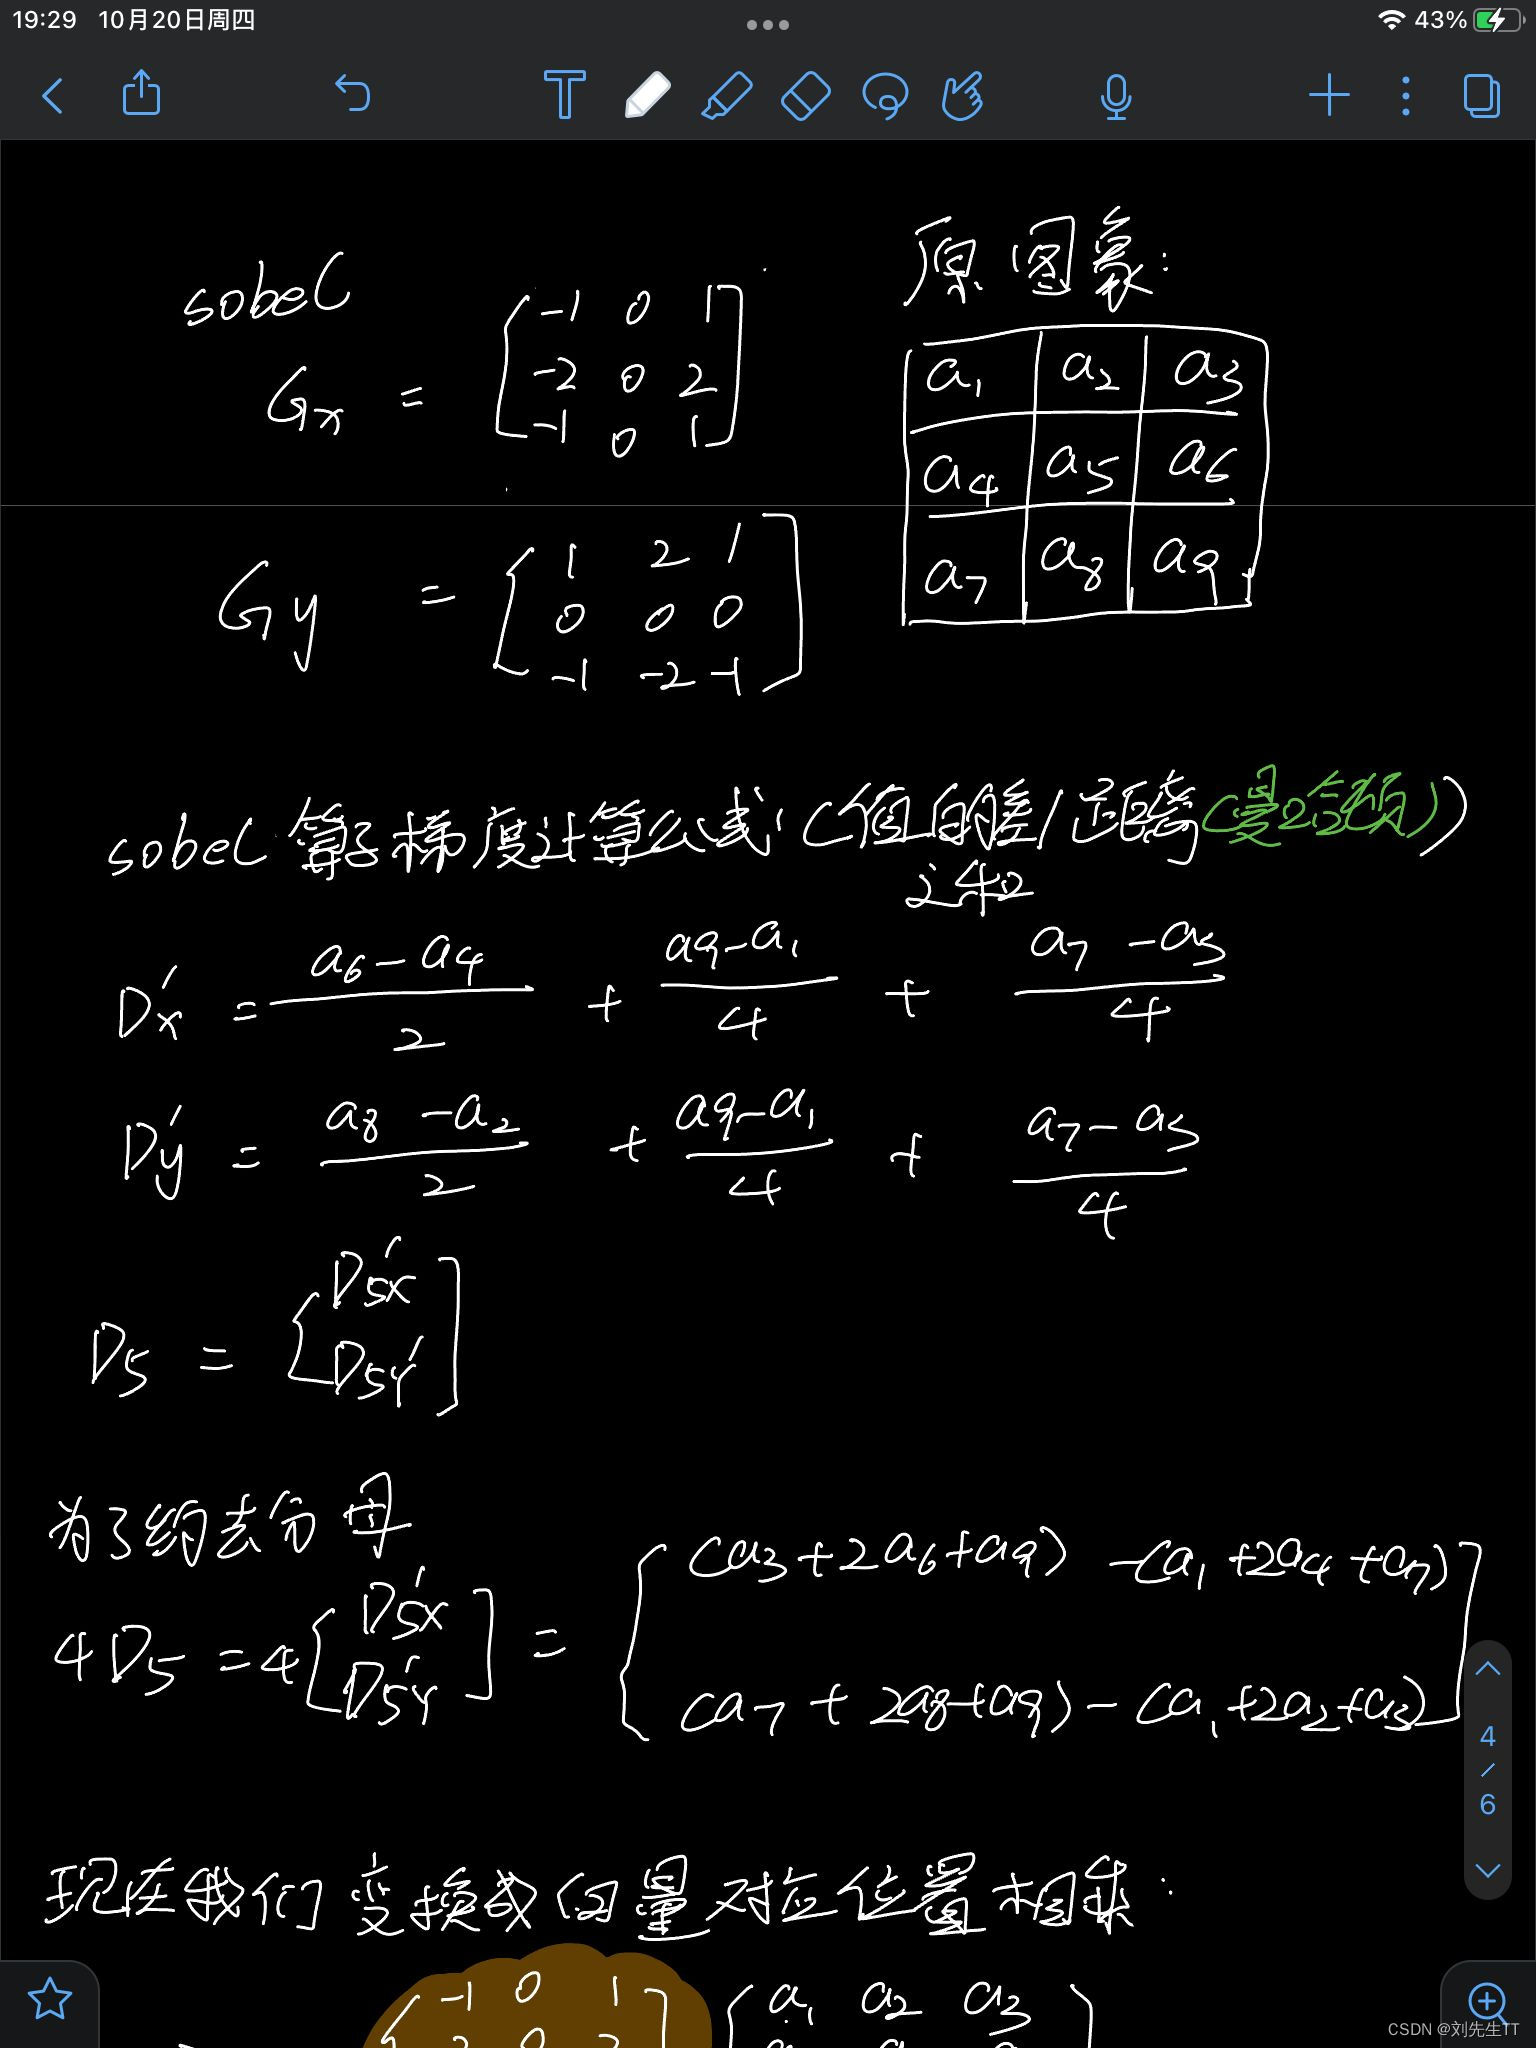 19:29 10月20日周四 43%
sobel
原图象:
Gx = [-1 0 1
-2 0 2
-1 0 1]
a1 a2 a3
a4 a5 a6
a7 a8 a9
Gy = [1 2 1
0 0 0
-1 -2 -1]
sobel 算子梯度计算公式 (值的差/距离(曼哈顿))
之和
D'x = (a6-a4)/2 + (a9-a1)/4 + (a7-a3)/4
D'y = (a8-a2)/2 + (a9-a1)/4 + (a7-a3)/4
D5 = [D5x'
D5Y']
为了约去分母
4D5 = 4[D5x'
D5Y'] = [(a3+2a6+a9) -(a1+2a4+a7)
(a7+2a8+a9) - (a1+2a2+a3)]
4
/
6
现在我们变换成向量对应位置相乘:
[-1 0 1] [a1 a2 a3]
CSDN @刘先生TT